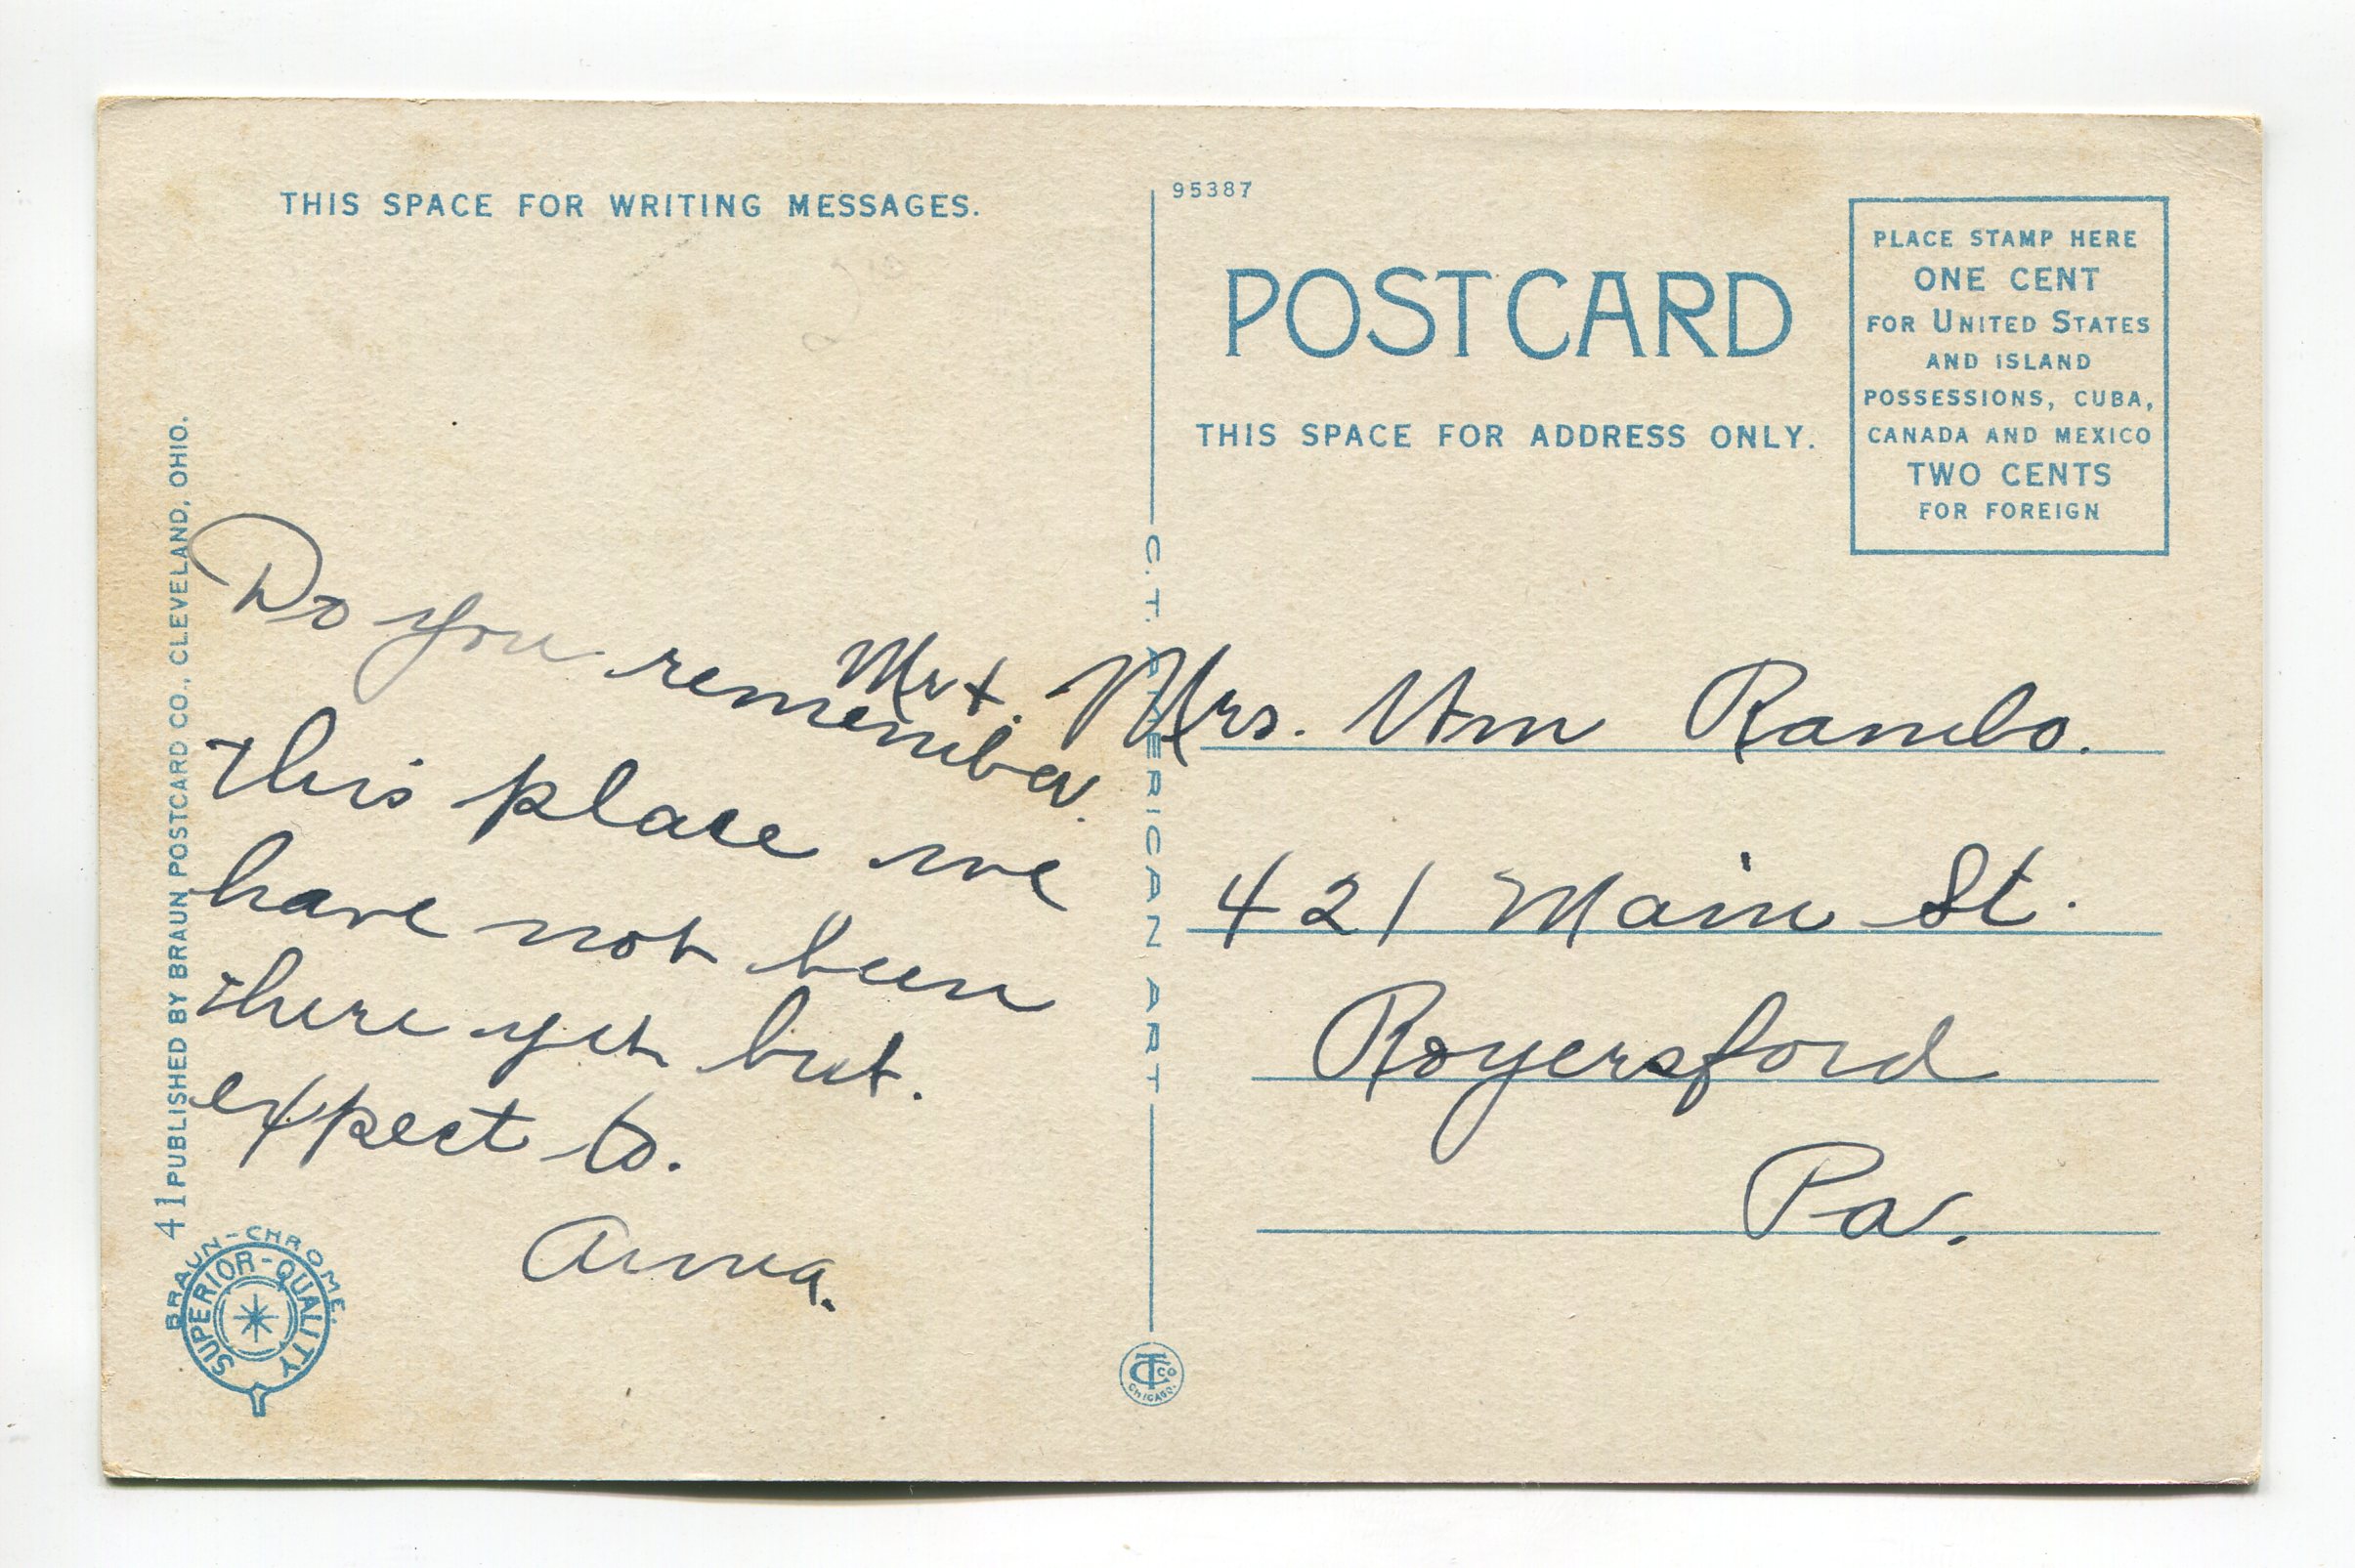 THIS SPACE FOR WRITING MESSAGES.
Do you remember
this place we
have not been
there yet but.
expect to.
Anna.
41 PUBLISHED BY BRAUN POSTCARD CO., CLEVELAND, OHIO.
BRAUN-CHROME.
SUPERIOR-QUALITY
95387
POST CARD
THIS SPACE FOR ADDRESS ONLY.
PLACE STAMP HERE
ONE CENT
FOR UNITED STATES
AND ISLAND
POSSESSIONS, CUBA,
CANADA AND MEXICO
TWO CENTS
FOR FOREIGN
C.T. AMERICAN ART
Mr +. Mrs. Wm Rambo.
421 Main St.
Royersford
Pa.
CT CO
CHICAGO.